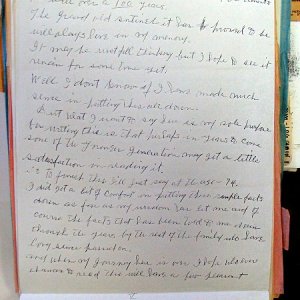 well over a 100 years.
The grand old sentinel it has proved to be
will always live in my memory.
It may be wistful thinking but I hope to see it
remain for some time yet.
Well I don't know if I have made much
sense in putting this all down.
But what I want to say here is my sole purpose
for writing this is that perhaps in years to come
some of the younger generation may get a little
satisfaction in reading it.
to finish this I'll just say at the age 74
I did get a lot of comfort in putting these simple facts
down as far as my wisdom has let me and of
course the facts that has been told to me down
through the years by the rest of the family who have
long since passed on
and when my journey here is over I hope who ever
chances to read this will have a few pleasant